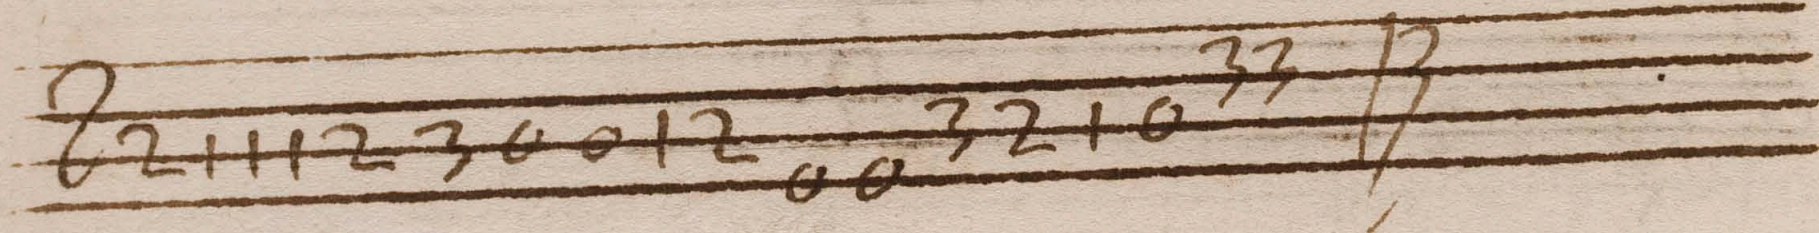 2 1 1 1 2 3 0 0 1 2 0 0 3 2 1 0 3 3